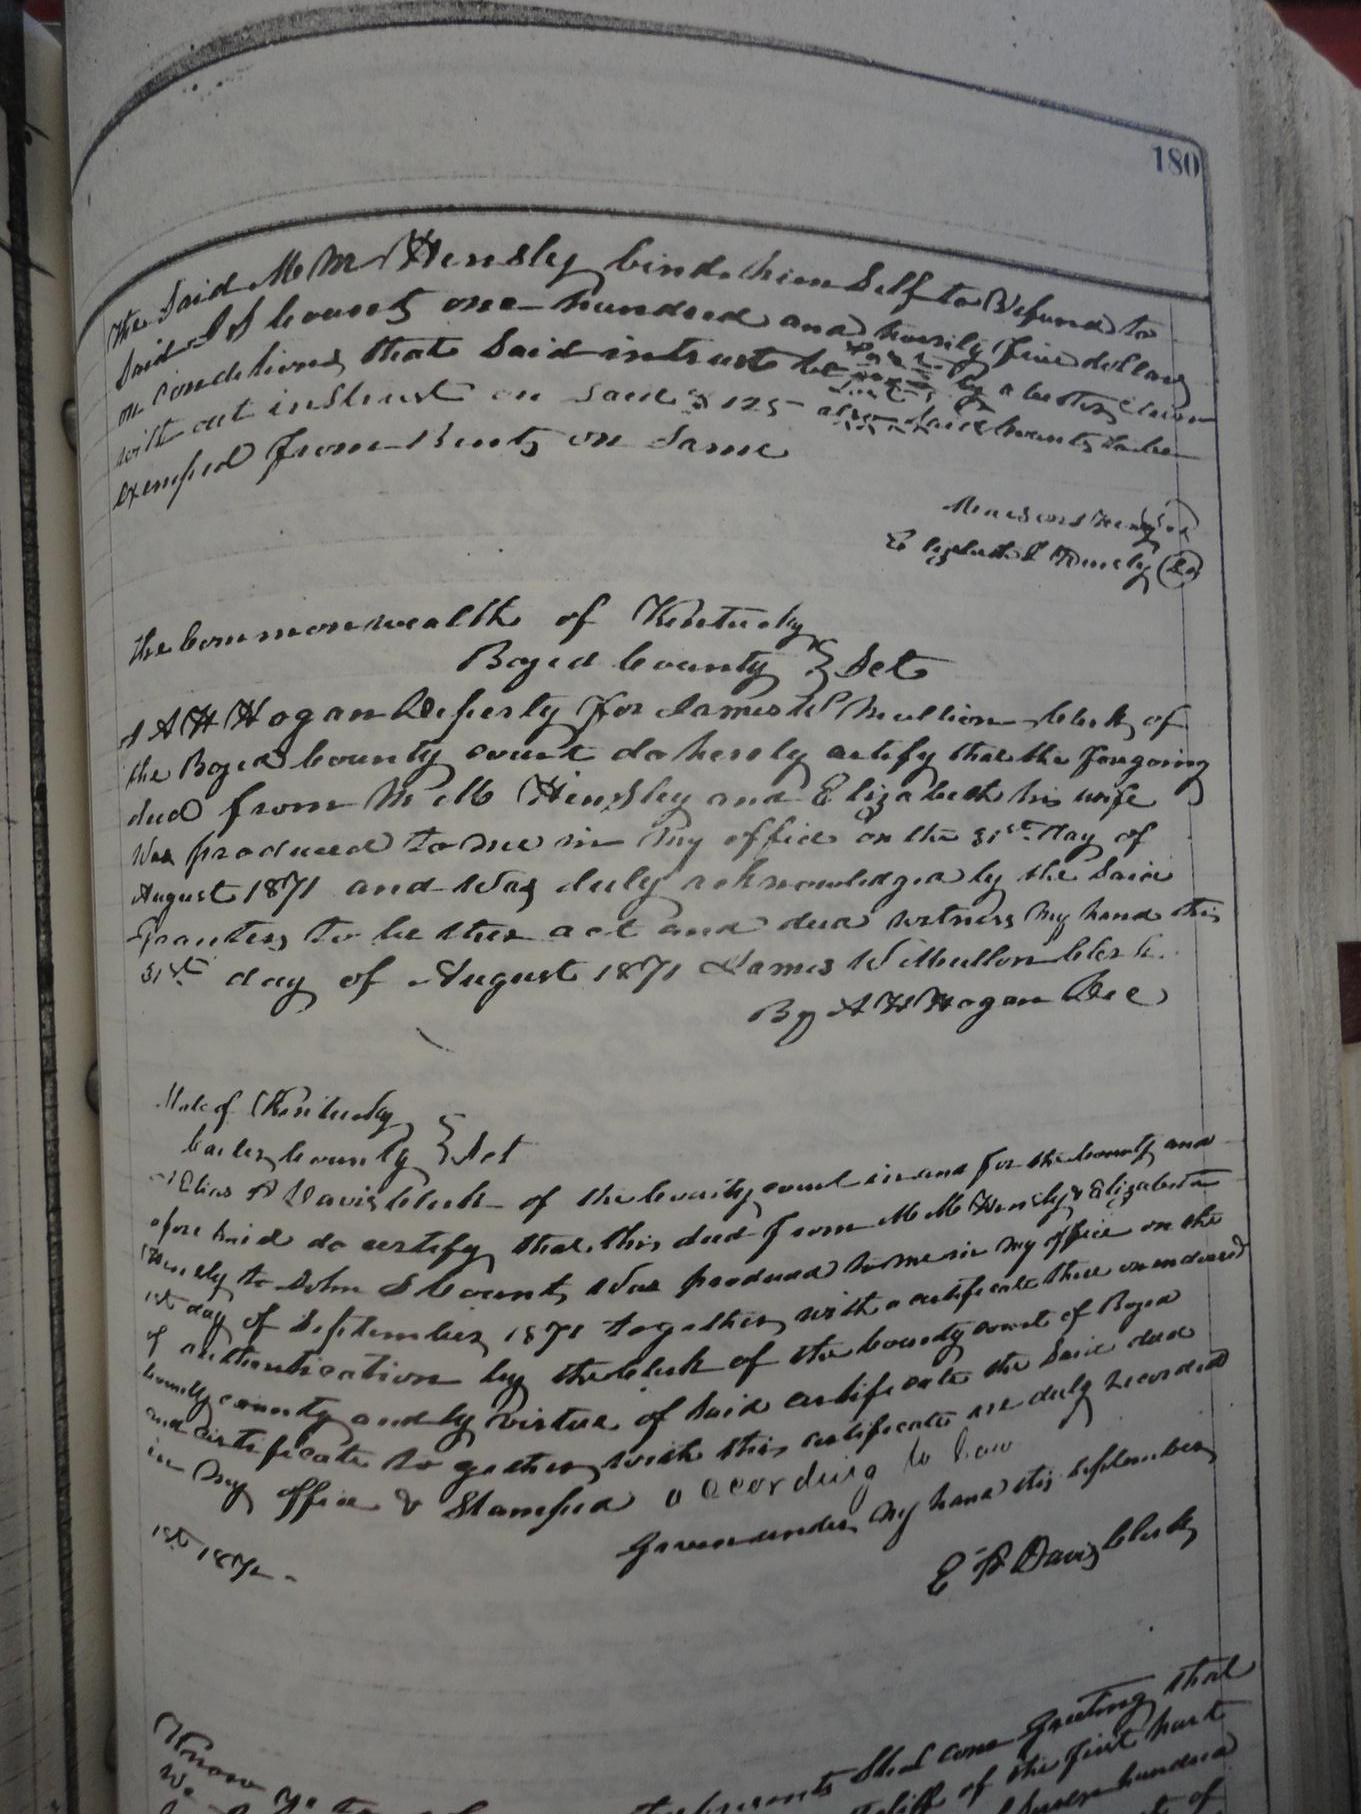 180
the Said M M Hensley bind him Self to Refund to
Said J S Counts one hundred and twenty five dollars
on Conditions that Said intrust be by a better claim
with out instrust on Said $125 also Said Counts to be
exempted from Rents on Same
Hensley
Elizabeth Hensley
the Commonwealth of Kentucky
Boyed County } Sct
I A H Hogan Deputy for James W Mullion Clerk of
the Boyed County court do hereby certify that the forgoing
deed from M M Hensley and Elizabeth his wife
Was produced to me in my office on the 31st day of
August 1871 and Was duly acknowledged by the Said
Grantors to be ther act and deed witness my hand this
31st day of August 1871 James W Mullon Clerk
By A H Hogan D.C
State of Kentucky
Carter County } Sct
I Elias P Davis Clerk of the County court in and for the County and
afore Said do certify that this deed from M M Hensley & Elizabeth
Hensley to John S Counts Was produced to me in my office on the
1st day of September 1871 together with a certificate there on endorsed
of authentication by the Clerk of the County court of Boyed
County county and by virtue of Said certificate the Said deed
and certificate to gether with this certificate are duly recorded
in my office & Stamped according to law
Given under my hand this September
1st 1871
E P Davis Clerk
Know ye presents Shall come Greeting that
We of the first part
hundred
of